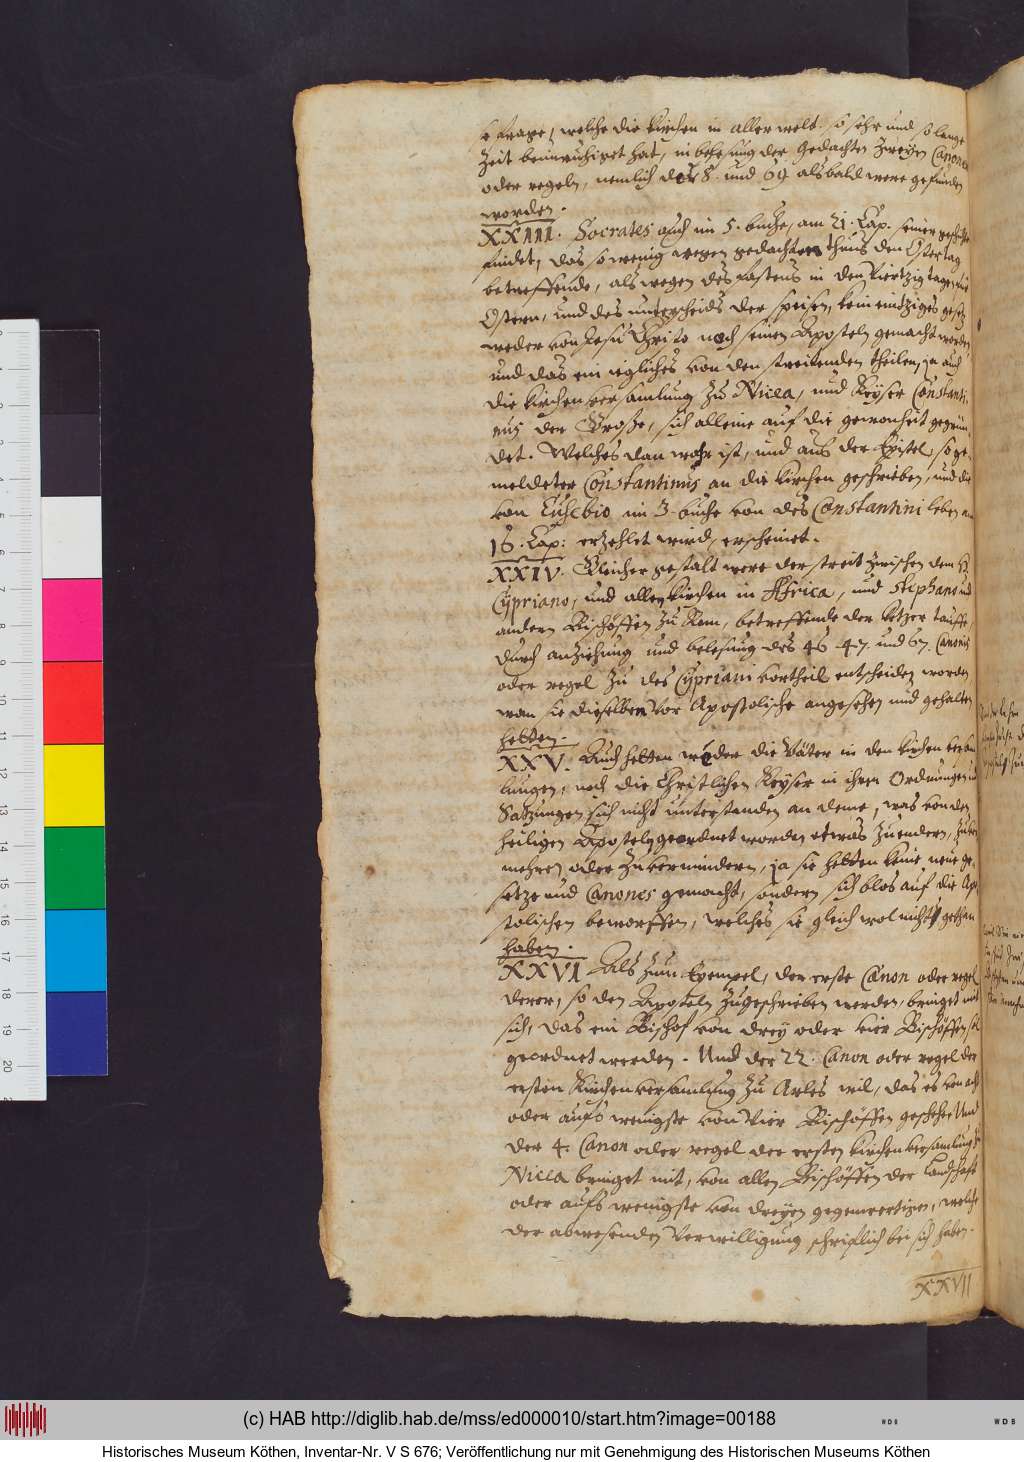 e frage, welche die Kirchen in aller welt so sehr und so lange
Zeit beunruhiget hat, in belesung der gedachten zweyen Canones
oder regeln, nemlich des 8. und 69. alsbald were gefunden
worden.
XXIII. Socrates auch im 5. buche, am 21. Cap. seiner geschichte
findet, das so wenig wegen gedachten thuns den Ostertag
betreffende, als wegen des fastens in den viertzig tagen
Ostern, und des unterscheids der speisen, kein eintziges gesetz
weder von Jesu Christo noch seinen Aposteln gemacht worden,
und das ein iegliches von den streitenden theilen, ja auch
die Kirchenversamlung zu Nicea, und Keyser Constanti-
nus der Große, sich alleine auf die gewonheit gegrün-
det. Welches dan wahr ist, und aus der Epistel so ge-
meldeter Constantinus an die Kirchen geschrieben, und die
von Eusebio im 3. buche von des Constantini leben am
18. Cap: erzehlet wird, erscheinet.
XXIV. Gleicher gestalt were der streit zwischen dem H.
Cypriano, und allen kirchen in Africa, und Stephano und
andern Bischöffen zu Rom, betreffende der Ketzer tauffe,
durch anziehung und belesung des 46 47. und 67. Canonis
oder regel zu des Cypriani vortheil entscheiden worden
wan sie dieselben vor Apostolische angesehen und gehalten
hetten.
XXV. Auch hetten weder die Väter in den kirchen versam
lungen, noch die Christlichen Keyser in ihren Ordnungen und
Satzungen sich nicht unterstanden an deme, was von den
heiligen Aposteln geordnet worden etwas zu endern, zu ver
mehren oder zu vermindern, ja sie hetten keine neue ge-
setze und Canones gemacht, sondern sich blos auf die Apo
stolischen beworffen, welches sie gleich wol nicht gethan
haben.
XXVI Als zum Exempel, der erste Canon oder regel
derer, so den Aposteln zugeschrieben werden, bringet mit
sich, das ein Bischof von drey oder vier Bischöffen sol
geordnet werden. Und der 22. Canon oder regel der
ersten Kirchenversamlung zu Arles wil, das es von acht
oder aufs wenigste von vier Bischöffen geschehe. Und
der 4. Canon oder regel der ersten kirchenversamlung zu
Nicea bringet mit, von allen Bischöffen der landschaft
oder aufs wenigste von dreyen gegenwertigen, welche
der abwesenden verwilligung schriftlich bei sich haben.
XXVII
(c) HAB http://diglib.hab.de/mss/ed000010/start.htm?image=00188
Historisches Museum Köthen, Inventar-Nr. V S 676; Veröffentlichung nur mit Genehmigung des Historischen Museums Köthen